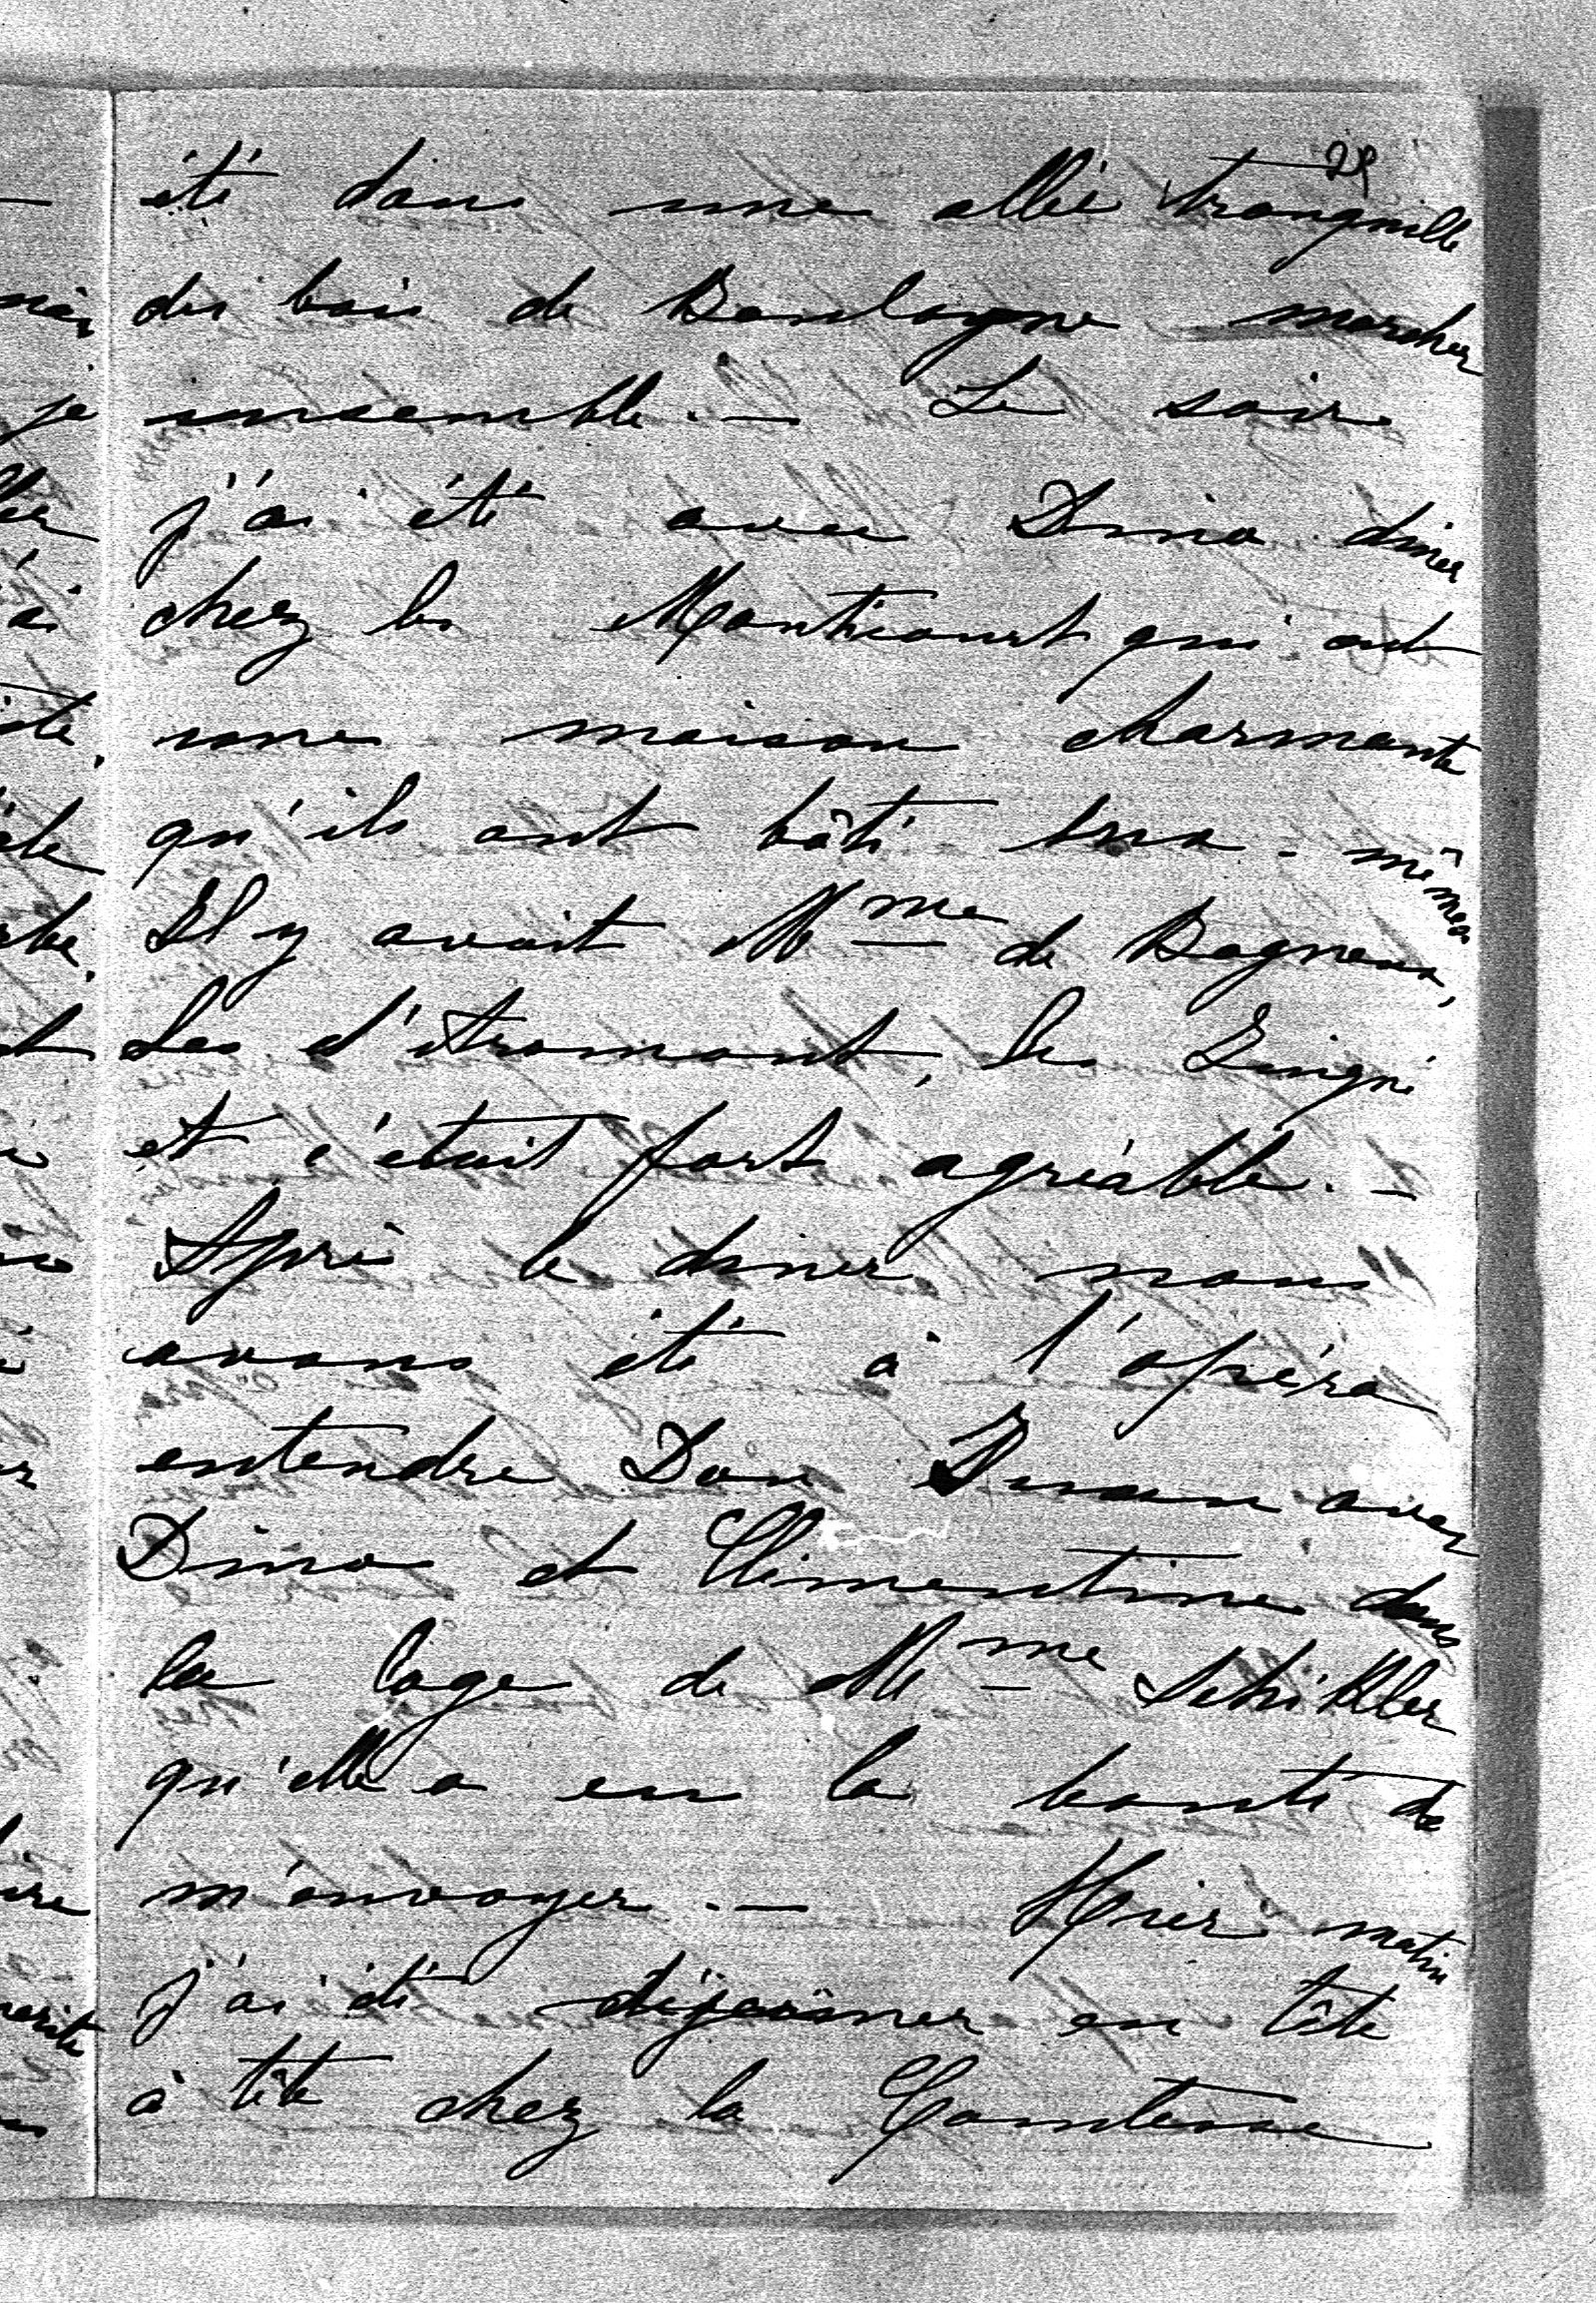 29
été dans une allée tranquille
des bois de Boulogne marcher
ensemble. — Le soir
j'ai été avec Dino diner
chez les Monticourt qui ont
une maison charmante
qu'ils ont bâti eux-mêmes
Il y avait Mme de Bagneux,
Les d'Aramont, les
et c'était fort agréable. —
Après le diner nous
avons été à l'opéra
entendre Don Juan avec
Dino et Clémentine dans
la loge de Mme Schikler
qu'elle a eu la bonté de
m'envoyer. — Hier matin
j'ai été déjeuner en tête
à tête chez la Comtesse